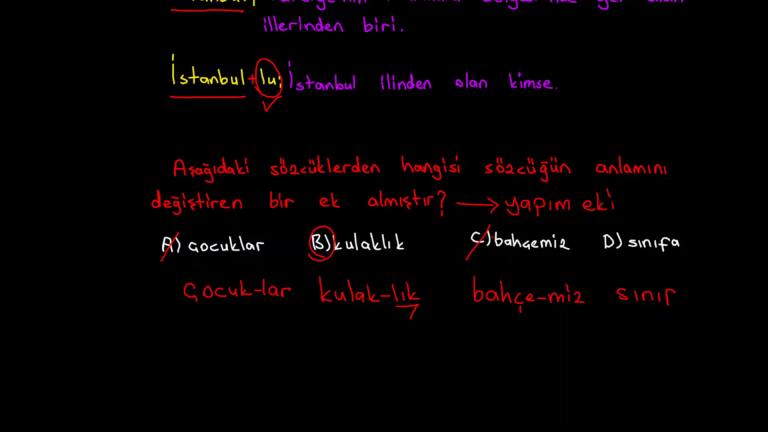 illerinden biri.
İstanbul + lu: İstanbul ilinden olan kimse.
Aşağıdaki sözcüklerden hangisi sözcüğün anlamını
değiştiren bir ek almıştır? → yapım eki
A) çocuklar B) kulaklık C) bahçemiz D) sınıfa
Çocuk-lar kulak-lık bahçe-miz sınıf